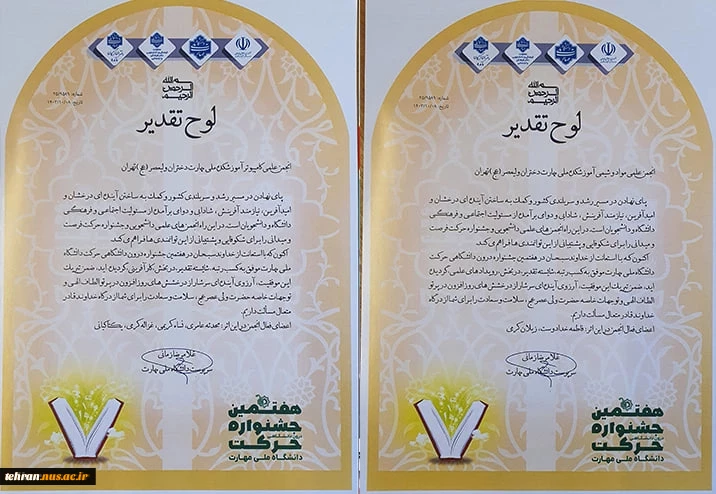 بسم الله الرحمن الرحیم
شماره: ۲۵/۹۵۷۹
تاریخ: ۱۴۰۳/۱۰/۰۹
لوح تقدیر
انجمن علمی کامپیوتر آموزشکده ملی مهارت دختران ولیعصر (عج) تهران
پای نهادن در مسیر رشد و سربلندی کشور و کمک به ساختن آینده‌ای درخشان و
امیدآفرین، نیازمند آفرینش، شادابی و دوای برآمدن از مسئولیت اجتماعی و فرهنگی
دانشگاه و دانشجویان است. در این راه انجمن‌های علمی دانشجویی و جشنواره حرکت فرصت
و میدانی را برای شکوفایی و پشتیبانی از این توانمندی‌ها فراهم می‌کند
اکنون که با استعانت از خداوند سبحان در هفتمین جشنواره درون دانشگاهی حرکت دانشگاه
ملی مهارت موفق به کسب رتبه شایسته تقدیر، در بخش کارآفرینی گردیده اید، ضمن تبریک
این موفقیت، آرزوی آینده‌ای سرشار از درخشش‌های روزافزون در پرتو الطاف الهی و
توجهات خاصه حضرت ولی عصر عج، سلامت و سعادت را برای شما از درگاه خداوند قادر
متعال مسألت داریم.
اعضای فعال انجمن در این اثر: محدثه عامری، نساء کریمی، غزاله کری، یکتا کیانی
غلامرضا زمانی
سرپرست دانشگاه ملی مهارت
هفتمین
جشنواره
درون دانشگاهی
حرکت
دانشگاه ملی مهارت
بسم الله الرحمن الرحیم
شماره: ۲۵/۹۵۷۹
تاریخ: ۱۴۰۳/۱۰/۰۹
لوح تقدیر
انجمن علمی مواد و شیمی آموزشکده ملی مهارت دختران ولیعصر (عج) تهران
پای نهادن در مسیر رشد و سربلندی کشور و کمک به ساختن آینده‌ای درخشان و
امیدآفرین، نیازمند آفرینش، شادابی و دوای برآمدن از مسئولیت اجتماعی و فرهنگی
دانشگاه و دانشجویان است. در این راه انجمن‌های علمی دانشجویی و جشنواره حرکت فرصت
و میدانی را برای شکوفایی و پشتیبانی از این توانمندی‌ها فراهم می‌کند
اکنون که با استعانت از خداوند سبحان در هفتمین جشنواره درون دانشگاهی حرکت دانشگاه
ملی مهارت موفق به کسب رتبه شایسته تقدیر، در بخش رویدادهای علمی گردیده
اید، ضمن تبریک این موفقیت، آرزوی آینده‌ای سرشار از درخشش‌های روزافزون در پرتو
الطاف الهی و توجهات خاصه حضرت ولی عصر عج، سلامت و سعادت را برای شما از درگاه
خداوند قادر متعال مسألت داریم.
اعضای فعال انجمن در این اثر: فاطمه خدادوست، ژیلان کری
غلامرضا زمانی
سرپرست دانشگاه ملی مهارت
هفتمین
جشنواره
درون دانشگاهی
حرکت
دانشگاه ملی مهارت
tehran.nus.ac.ir